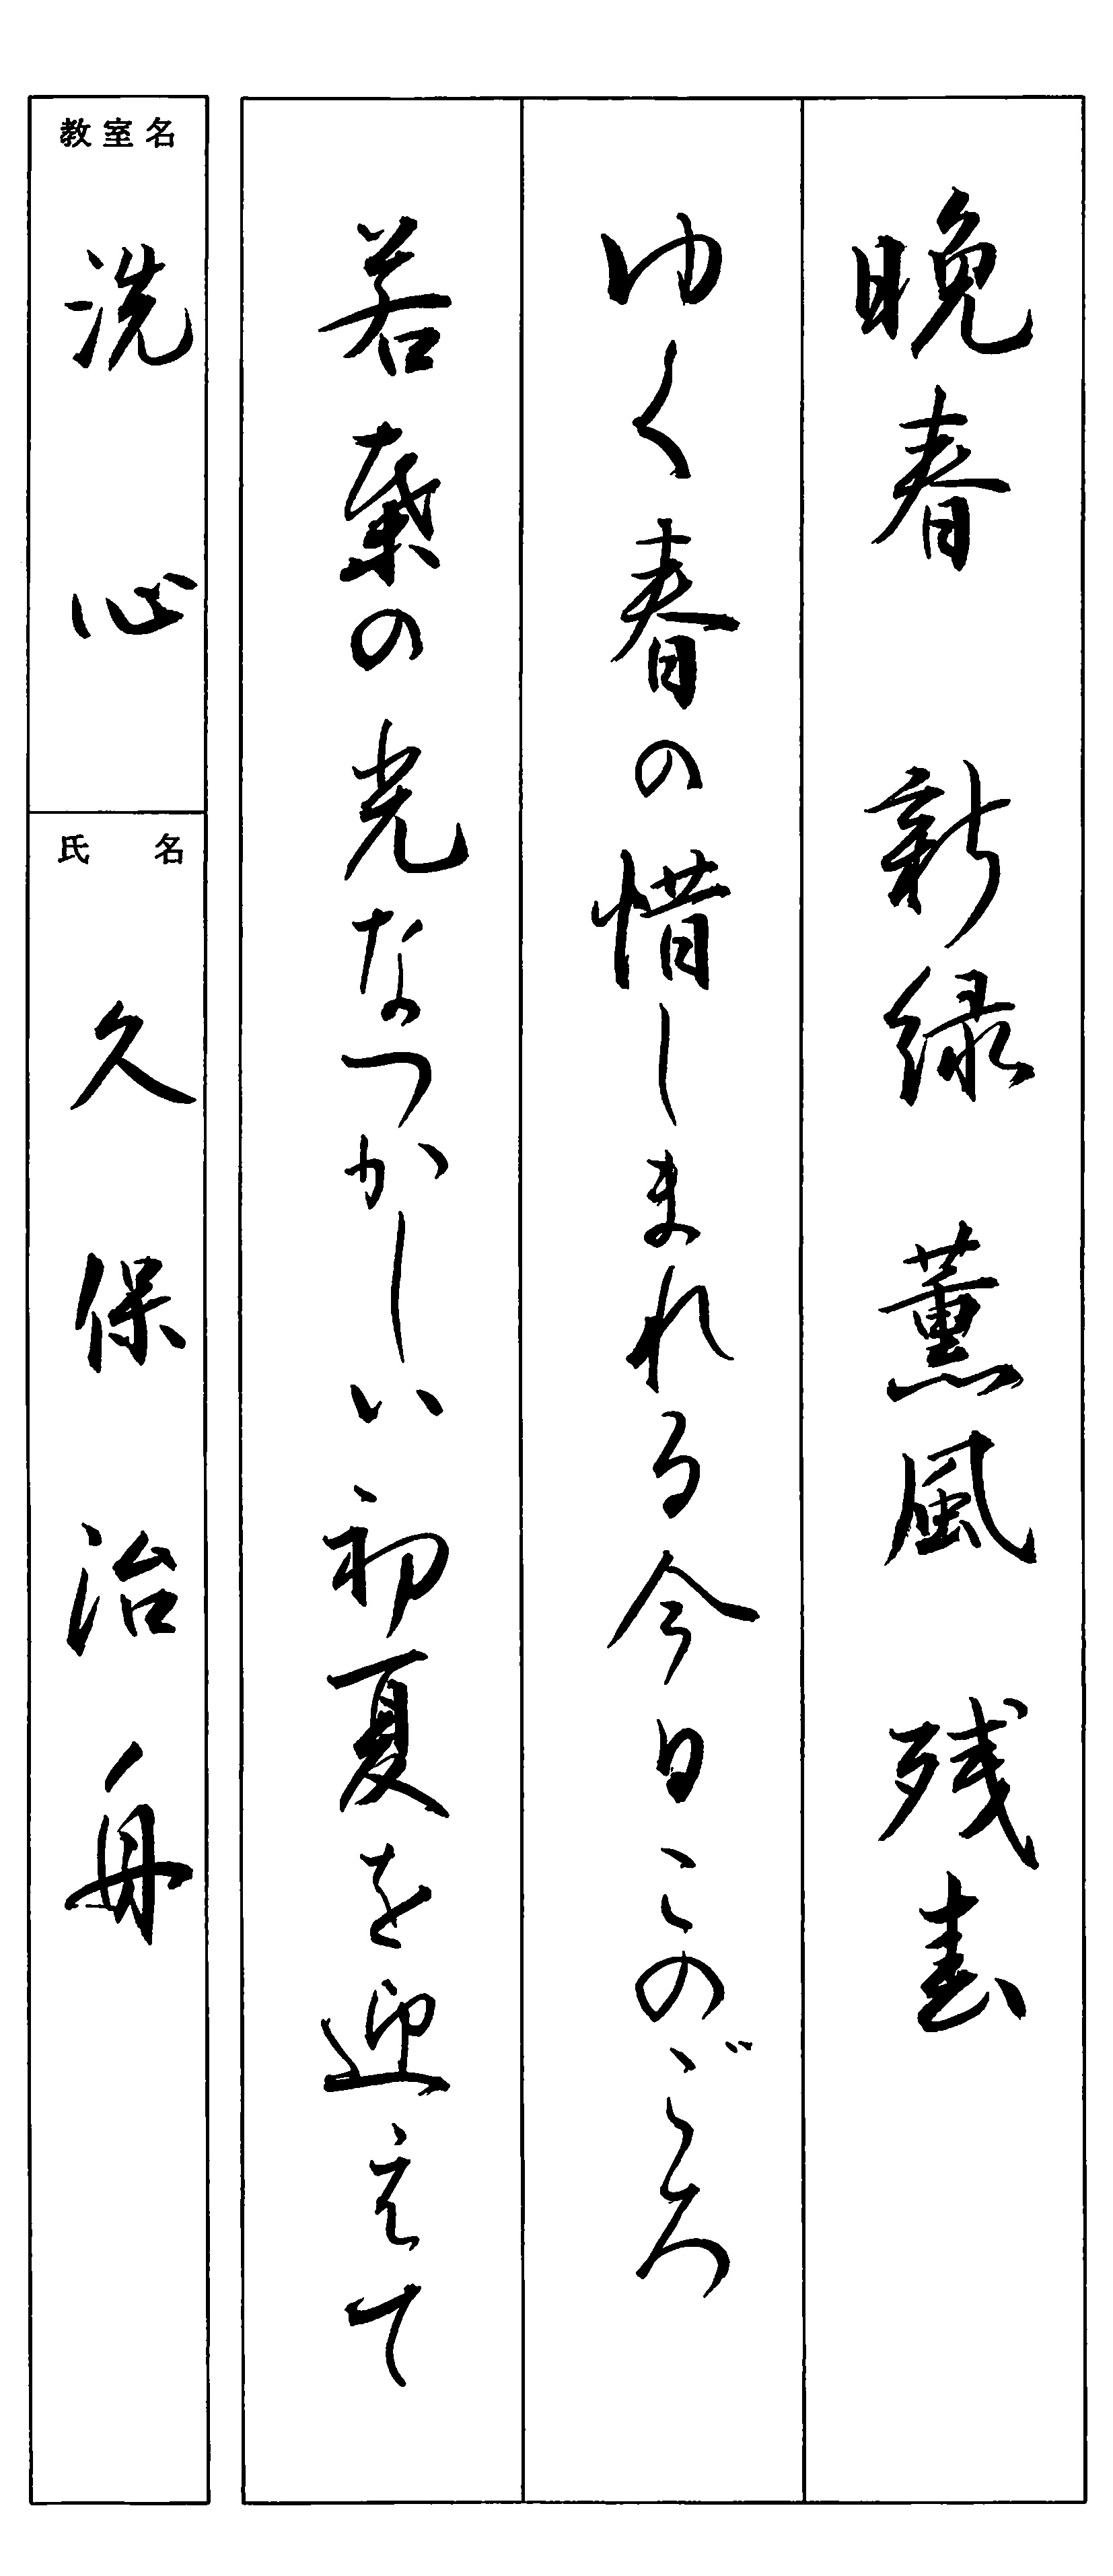 晩春 新緑 薫風 残春
ゆく春の惜しまれる今日このごろ
若葉の光なつかしい初夏を迎えて
教室名
洗心
氏名
久保治舟